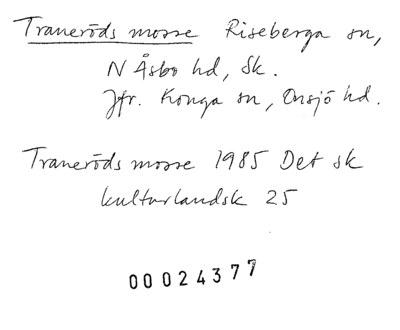 Traneröds mosse Riseberga sn,
N Åsbo hd, Sk.
Jfr. Konga sn, Onsjö hd.
Traneröds mosse 1985 Det sk
kulturlandsk 25
00024377